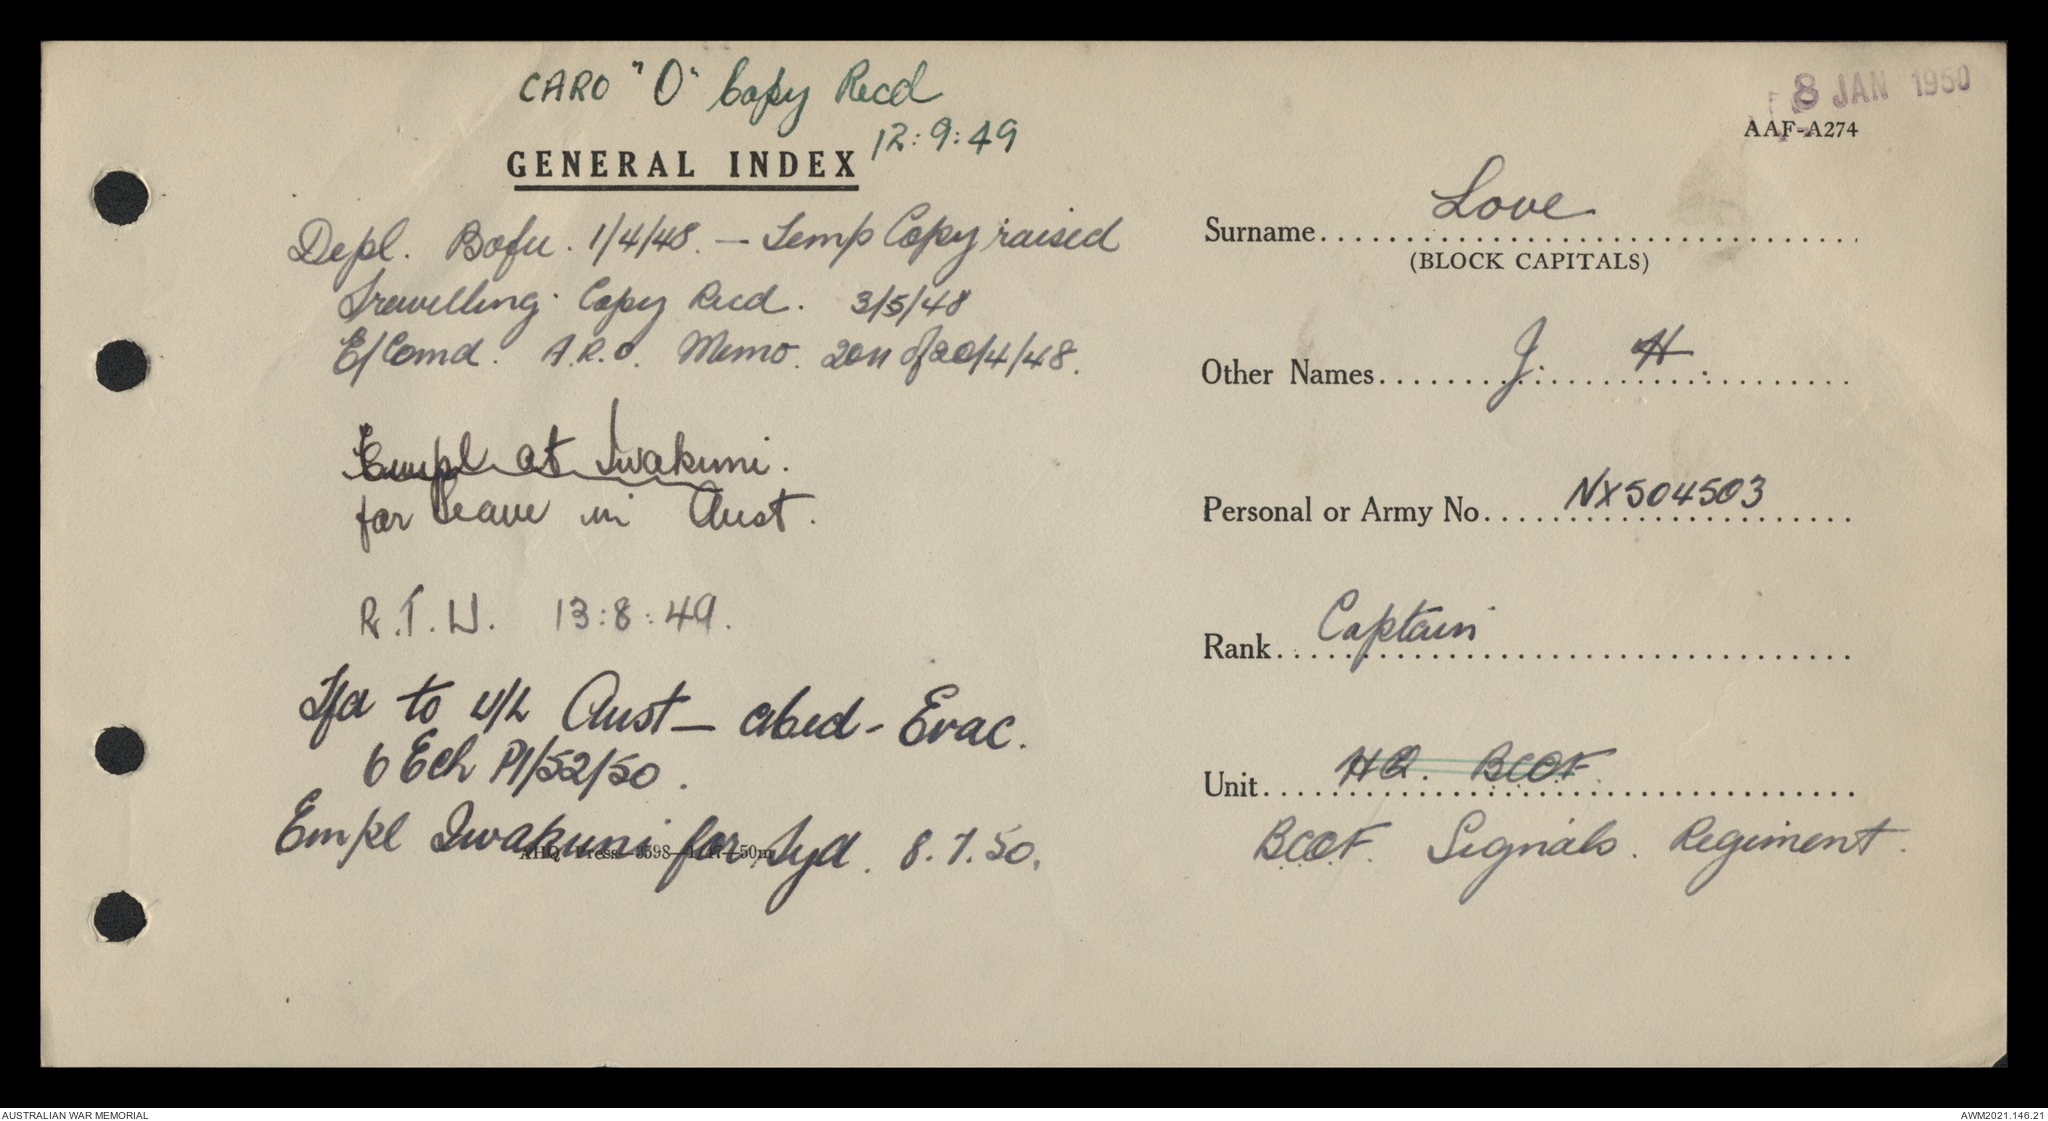 CARO "O" Copy Recd
12:9:49
8 JAN 1950
AAF-A274
GENERAL INDEX
Depl. Bofu. 1/4/48. — Temp Copy raised
Travelling Copy Recd. 3/5/48
E/Comd. A.R.O. Memo. 2011 of 20/4/48.
Empl at Iwakuni.
for leave in Aust.
R.T.U. 13:8:49.
Tfd to U/L Aust — abcd - Evac.
6 Ech P1/52/50.
Empl Iwakuni for Syd. 8.7.50.
AHQ Press—3598— —50m
Surname Love
(BLOCK CAPITALS)
Other Names J. H.
Personal or Army No. NX504503
Rank Captain
Unit HQ. BCOF.
BCOF. Signals. Regiment.
AUSTRALIAN WAR MEMORIAL
AWM2021.146.21